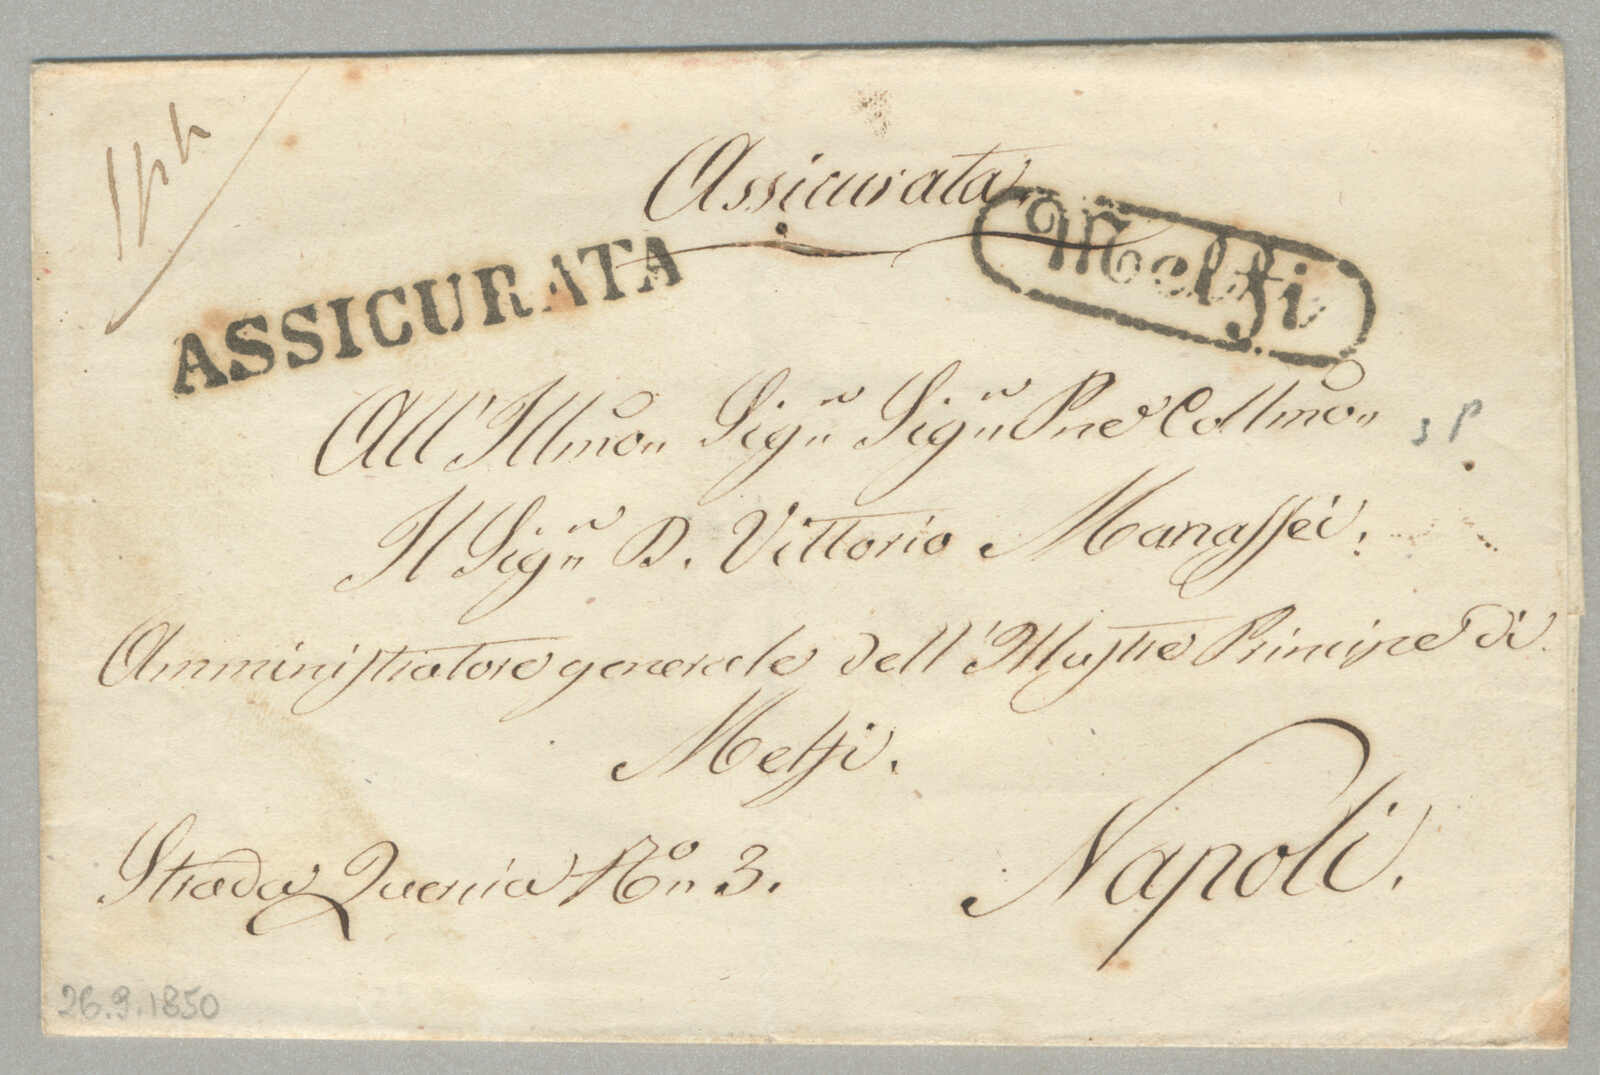 Assicurata
ASSICURATA
Melfi
All' Illmo" Sig.r" Sig.r" Pne Collmo"
Il Sig.r" D. Vittorio Manassei.
Amministratore generale dell' Illustre Principe di
Melfi.
Strada Quercia No" 3.
Napoli.
26.9.1850